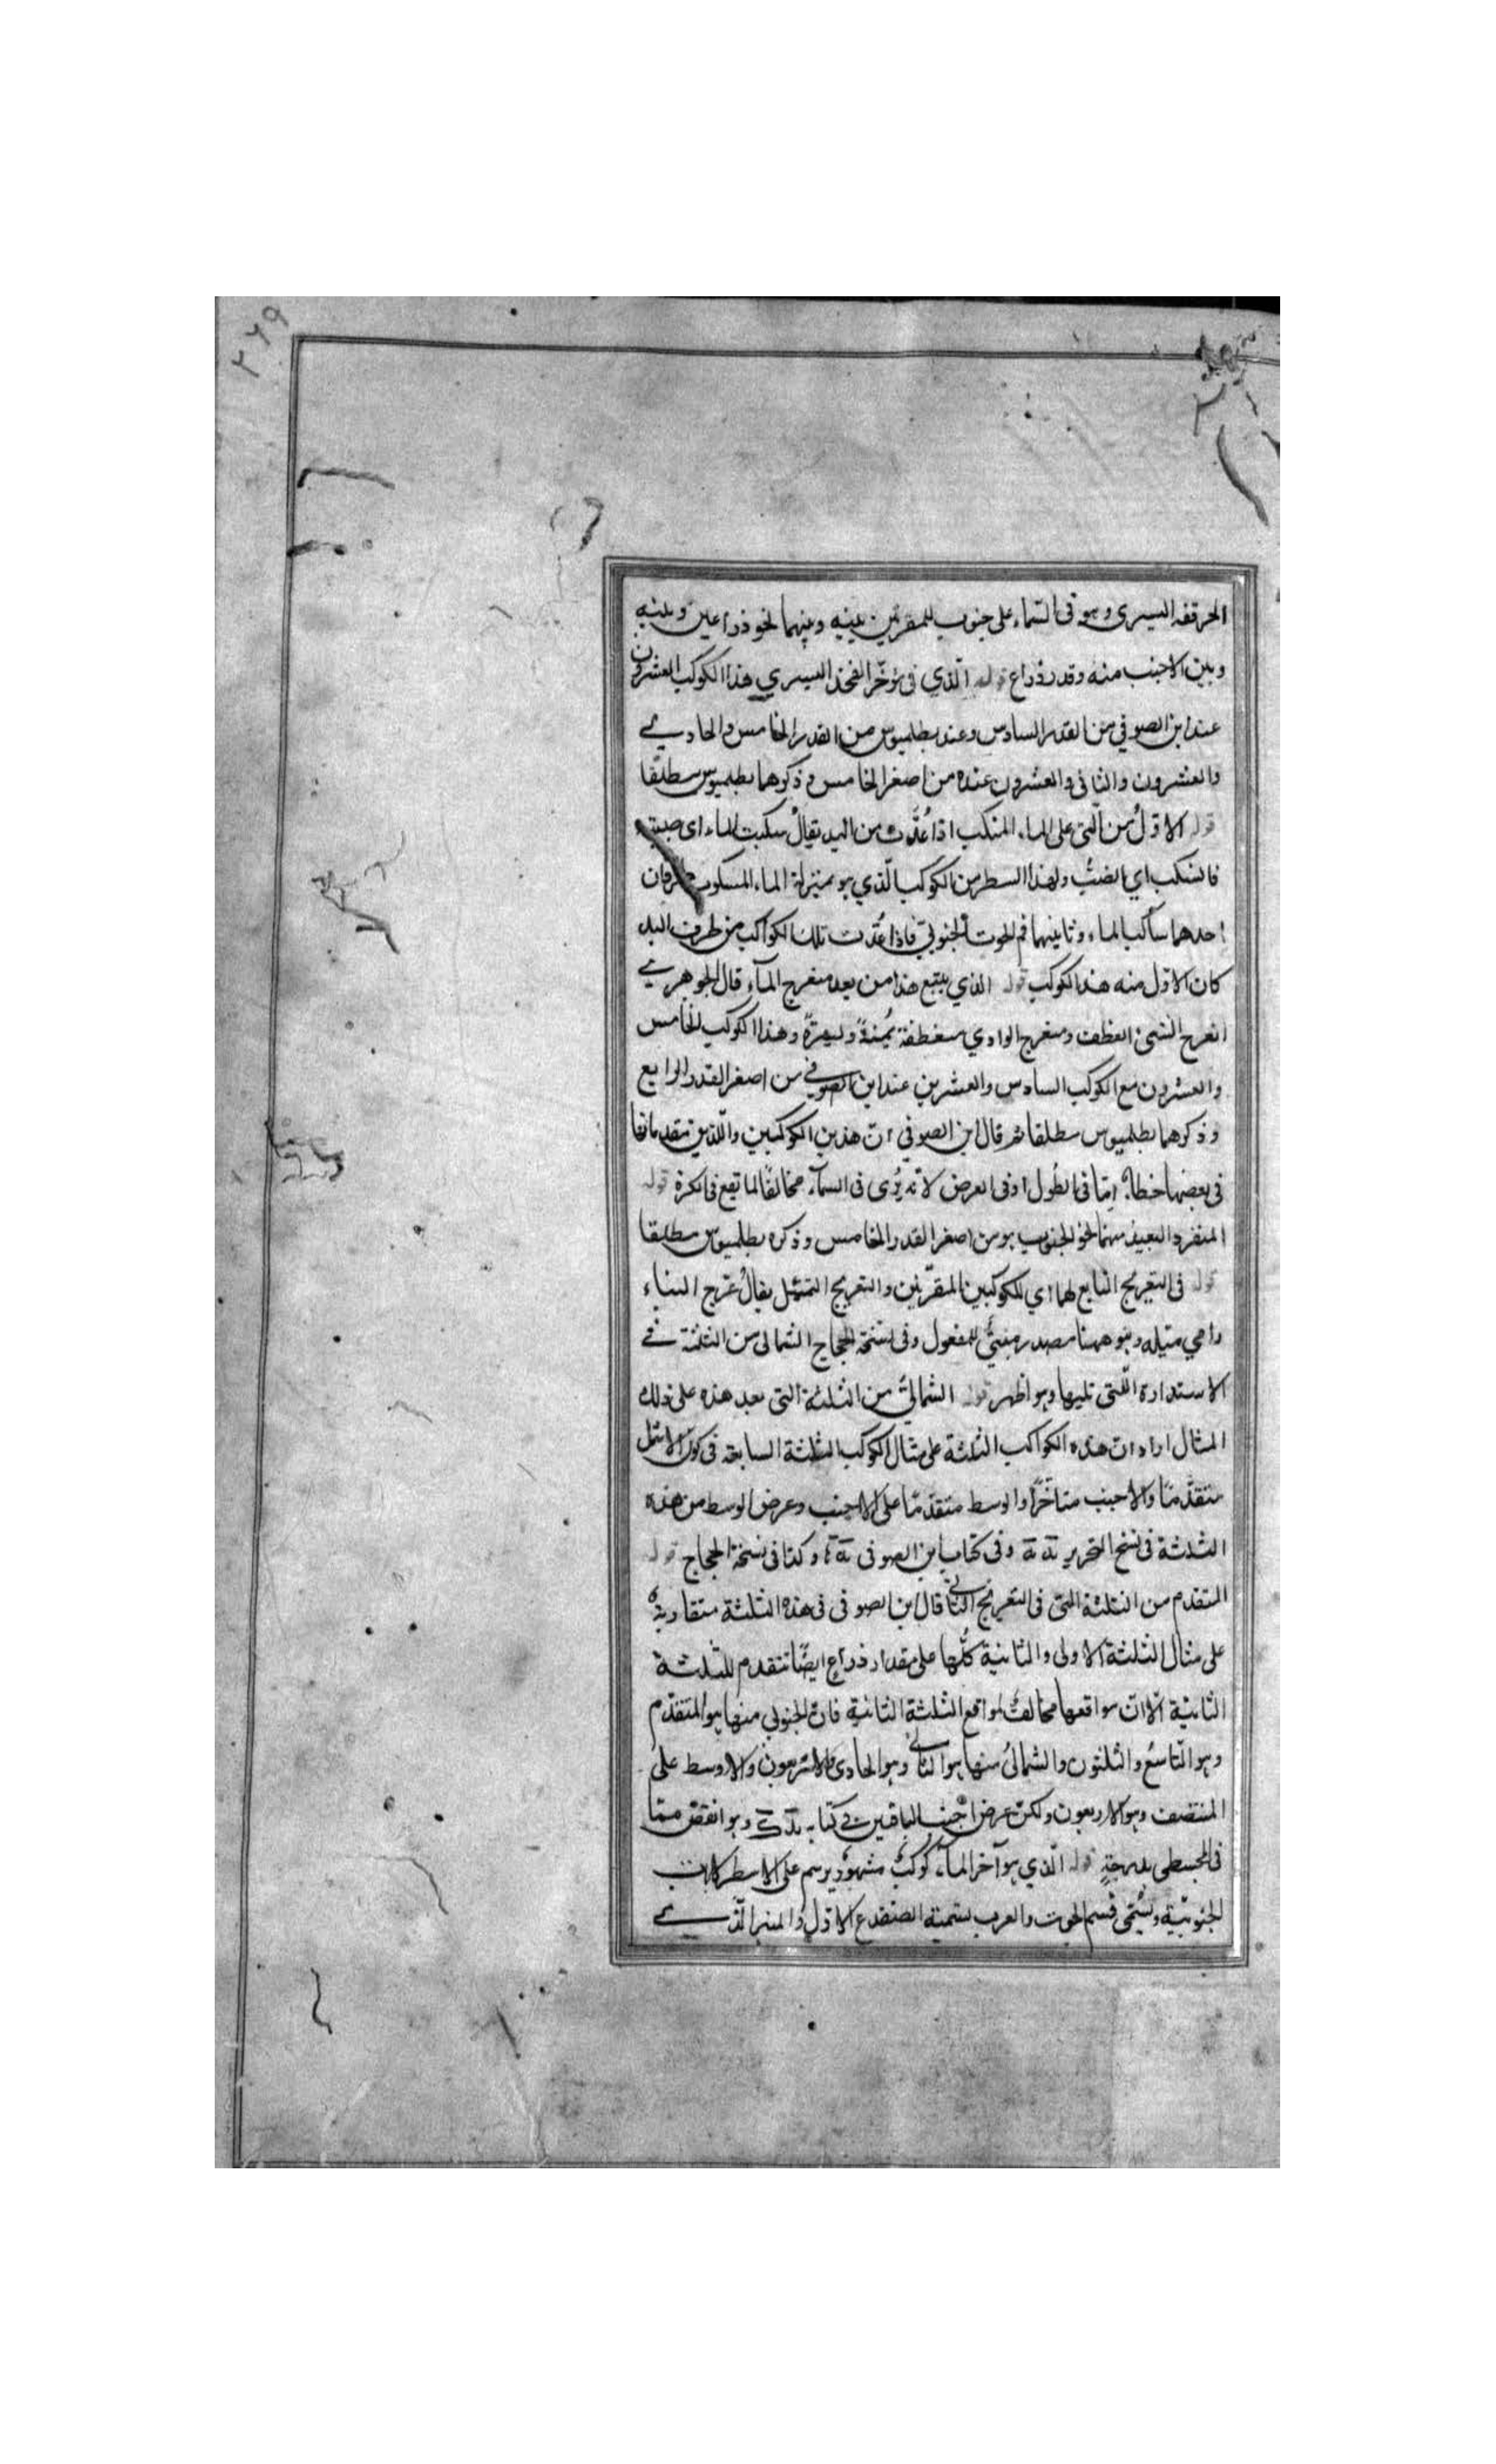 ٢٦٩
الحرقفه اليسرى وهو فى السّماء على جنوب المقرّبين بينه وبينهما نحو ذراعين وبينه
وبين الاجنب منه وقدر ذراع قوله الّذي فى مؤخّر الفخذ اليسري هذا الكوكب العشرون
عند ابن الصوفي من القدر السادس وعند بطلميوس من القدر الخامس والحادي
والعشرون والثانى والعشرون عنده من اصغر الخامس وذكرهما بطلميوس مطلقا
قوله الاوّل من الّتى على الماء المنكب اذا عُدَّت من اليد يقالُ سكبت الماء اى صببته
فانسكب اي انصبّ ولهذا السطر من الكوكب الّذي هو بمنزلة الماء المسكوب طرفان
احدهما ساكب الماء وثانيهما فم الحوت الجنوبيّ فاذا عُدّت تلك الكواكب من طرف اليد
كان الاوّل منه هذا الكوكب قوله الذي يتبع هذا من بعد منعرج المآء قال الجوهري
انعرج الشئ انعطف ومنعرج الوادي منعطفة يُمنةً ويسرةً وهذا الكوكب الخامس
والعشرون مع الكوكب السادس والعشرين عند ابن الصوفي من اصغر القدر الرابع
وذكرهما بطلميوس مطلقا ثم قال ابن الصوفي انّ هذين الكوكبين والّلذين تقدماهما
فى بعضها خطاء امّا فى الطول او فى العرض لانّه يُرى فى السمآء مخالفًا لما تقع فى الكرة قوله
المنفرد البعيد منهما نحو الجنوب هو من اصغر القدر الخامس وذكره بطلميوس مطلقا
قوله فى التعريج التابع لها اي للكوكبين المقرّبين والتعريج التميّل يقالُ عرّج البناء
اي ميّله وهو ههنا مصدر مبنيٌّ للمفعول وفى نسخة الحجاج الشمالى من الثلثة في
الاستدارة الّتى تليها وهو اظهر قوله الشماليّ من الثلثة التى بعد هذه على ذلك
المثال اراد انّ هذه الكواكب الثلثة على مثال الكوكب الثلثة السابعة فى كون الاشمل
متقدّمًا والاجنب متاخّرًا والوسط متقدّمًا على الاجنب وعرض الوسط من هذه
الثلثة فى نسخ التحرير يه نه وفى كتاب ابن الصوفى وكذا فى نسخة الحجاج قوله
المتقدم من الثلثة التى فى التعريج الثاني قال ابن الصوفى فى هذه الثلثة متقاربة
على مثال الثلثة الاولى والثانية كلّها على مقدار ذراع ايضًا تتقدم للثلثة
الثانية الّا انّ مواقعها مخالفٌ لمواقع الثلثة الثانية فانّ الجنوبي منها هو المتقدّم
وهو التاسعُ والثلثون والشمالىُّ منها هو التالي وهو الحادى والاربعون والاوسط على
المنتصف وهو الاربعون ولكن عرض اجنب الباقيين في كتابه وهو انقص ممّا
فى المجسطى بدرجةٍ قوله الّذي هو آخر المآء كوكبٌ مشهورٌ يرسم على الاسطرلابات
الجنوبيّة ويُسمّى فسم الحوت والعرب يسمّيه الضفدع الاوّل والمنير الّذي